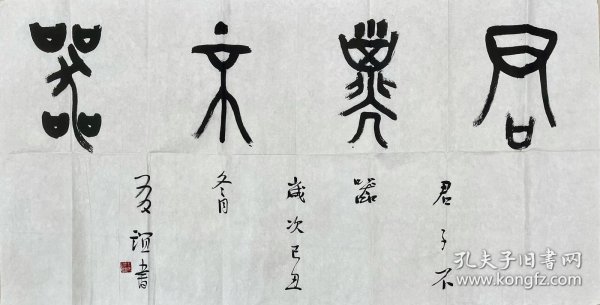 君子不器
君子不
器
歲次己丑
冬月
夏誼書
孔夫子旧书网
www.kongfz.com